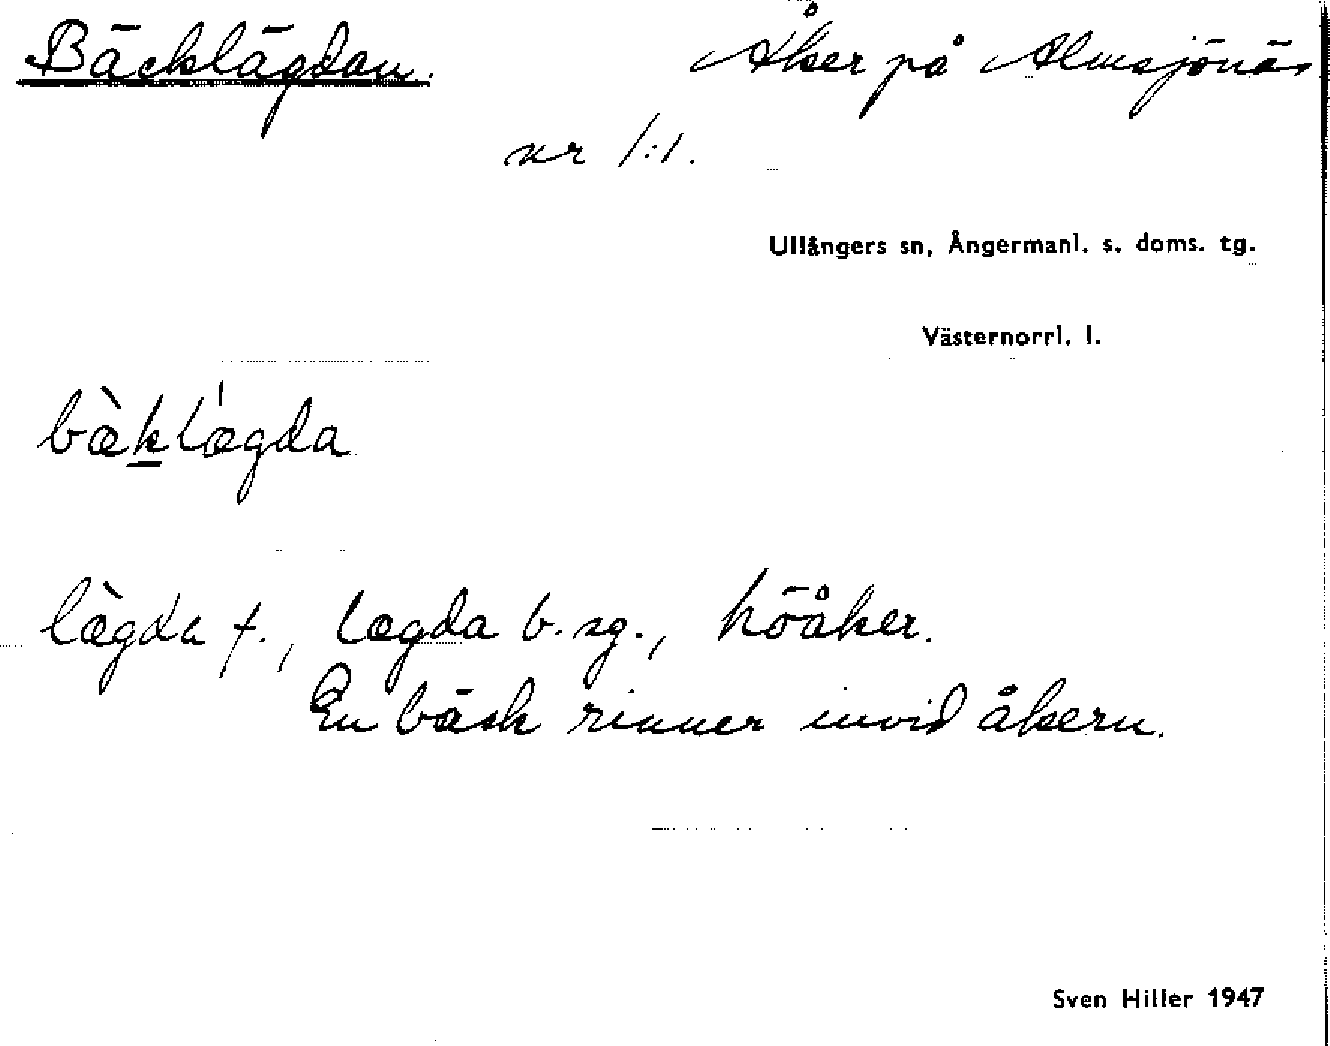 Bäcklägdan. Åker på Almsjönäs
nr 1:1.
Ullångers sn, Ångermanl. s. doms. tg.
Västernorrl. l.
bæ̀klægda
læ̀gda f., lægda b. sg., höåker.
En bäck rinner invid åkern.
Sven Hiller 1947